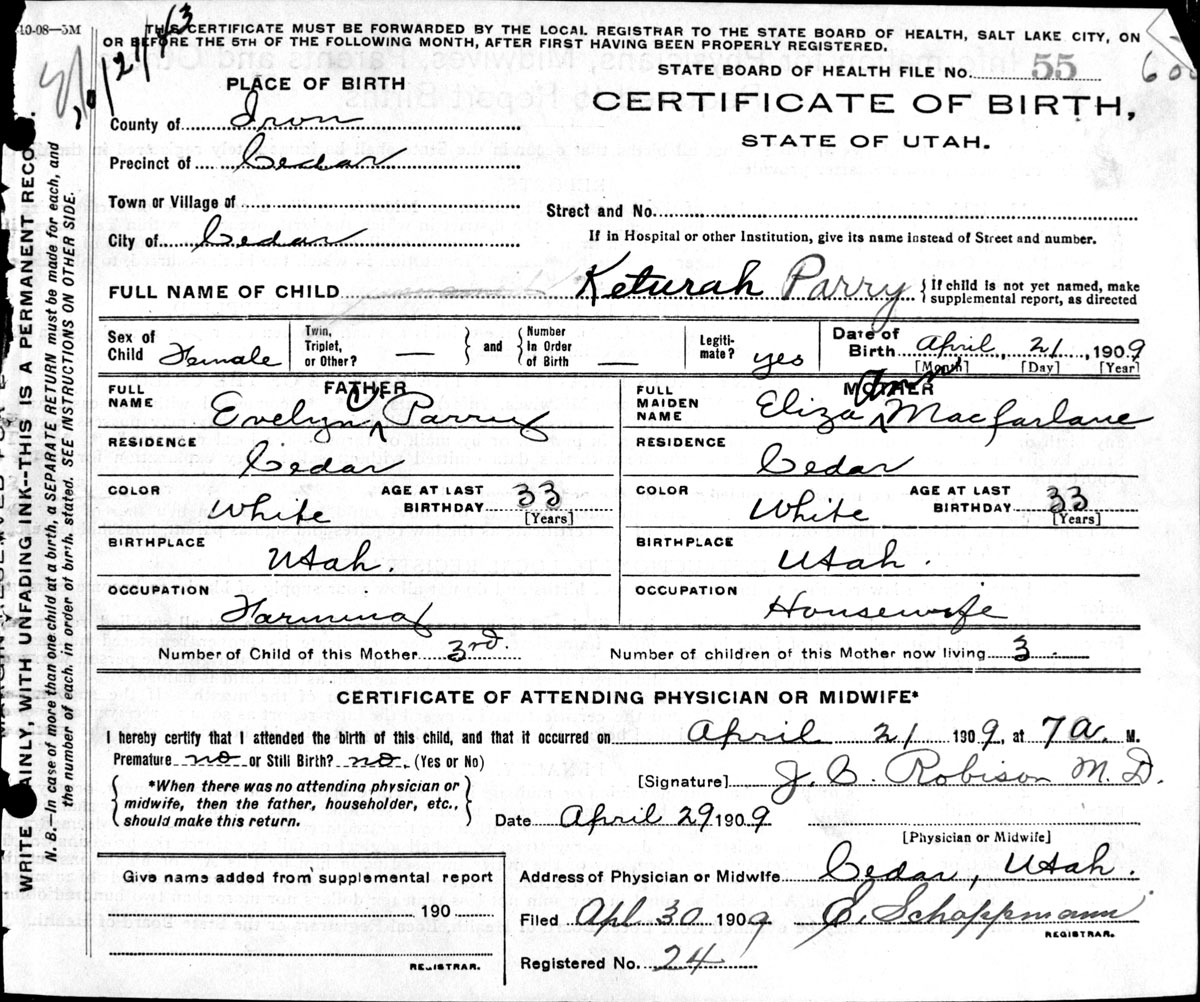 10-08—5M
THIS CERTIFICATE MUST BE FORWARDED BY THE LOCAL REGISTRAR TO THE STATE BOARD OF HEALTH, SALT LAKE CITY, ON
OR BEFORE THE 5TH OF THE FOLLOWING MONTH, AFTER FIRST HAVING BEEN PROPERLY REGISTERED.
PLACE OF BIRTH
STATE BOARD OF HEALTH FILE No. 55
CERTIFICATE OF BIRTH,
STATE OF UTAH.
County of Iron
Precinct of Cedar
Town or Village of
Street and No.
City of Cedar
If in Hospital or other Institution, give its name instead of Street and number.
FULL NAME OF CHILD Keturah Parry { If child is not yet named, make supplemental report, as directed
Sex of Child Female Twin, Triplet, or Other? — } and { Number In Order of Birth — Legitimate? yes Date of Birth April, 21, 1909
[Month] [Day] [Year]
FATHER
FULL NAME Evelyn Parry
RESIDENCE
Cedar
COLOR White AGE AT LAST BIRTHDAY 33
[Years]
BIRTHPLACE
Utah.
OCCUPATION
Farming
MOTHER
FULL MAIDEN NAME Eliza Ann Macfarlane
RESIDENCE
Cedar
COLOR White AGE AT LAST BIRTHDAY 33
[Years]
BIRTHPLACE
Utah.
OCCUPATION
Housewife
Number of Child of this Mother 3rd. Number of children of this Mother now living 3
CERTIFICATE OF ATTENDING PHYSICIAN OR MIDWIFE*
I hereby certify that I attended the birth of this child, and that it occurred on April 21 1909, at 7 a. M.
Premature no or Still Birth? no. (Yes or No)
[Signature] J. C. Robison M. D.
{ *When there was no attending physician or midwife, then the father, householder, etc., should make this return. }
Date April 29 1909
[Physician or Midwife]
Give name added from supplemental report
190
REGISTRAR.
Address of Physician or Midwife Cedar, Utah.
Filed Apl 30 1909 E. Schoppmann
REGISTRAR.
Registered No. 24
AINLY, WITH UNFADING INK--THIS IS A PERMANENT RECO
N. B.—In case of more than one child at a birth, a SEPARATE RETURN must be made for each, and
the number of each, in order of birth, stated. SEE INSTRUCTIONS ON OTHER SIDE.
WRITE